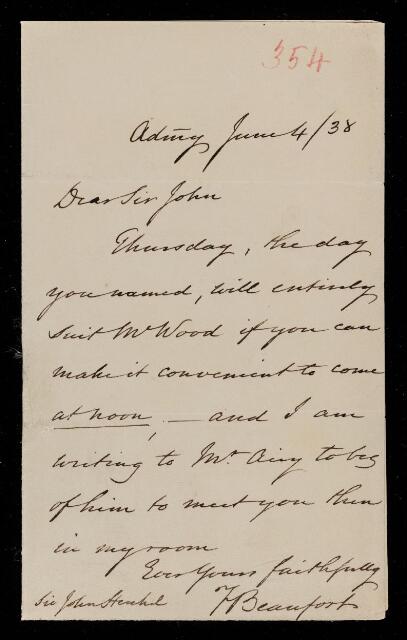 354
Admy June 4/38
Dear Sir John
Thursday, the day
you named, will entirely
suit Mr Wood if you can
make it convenient to come
at noon, — and I am
writing to Mr. Airy to beg
of him to meet you then
in my room
Ever Yours faithfully
Sir John Herschel F Beaufort